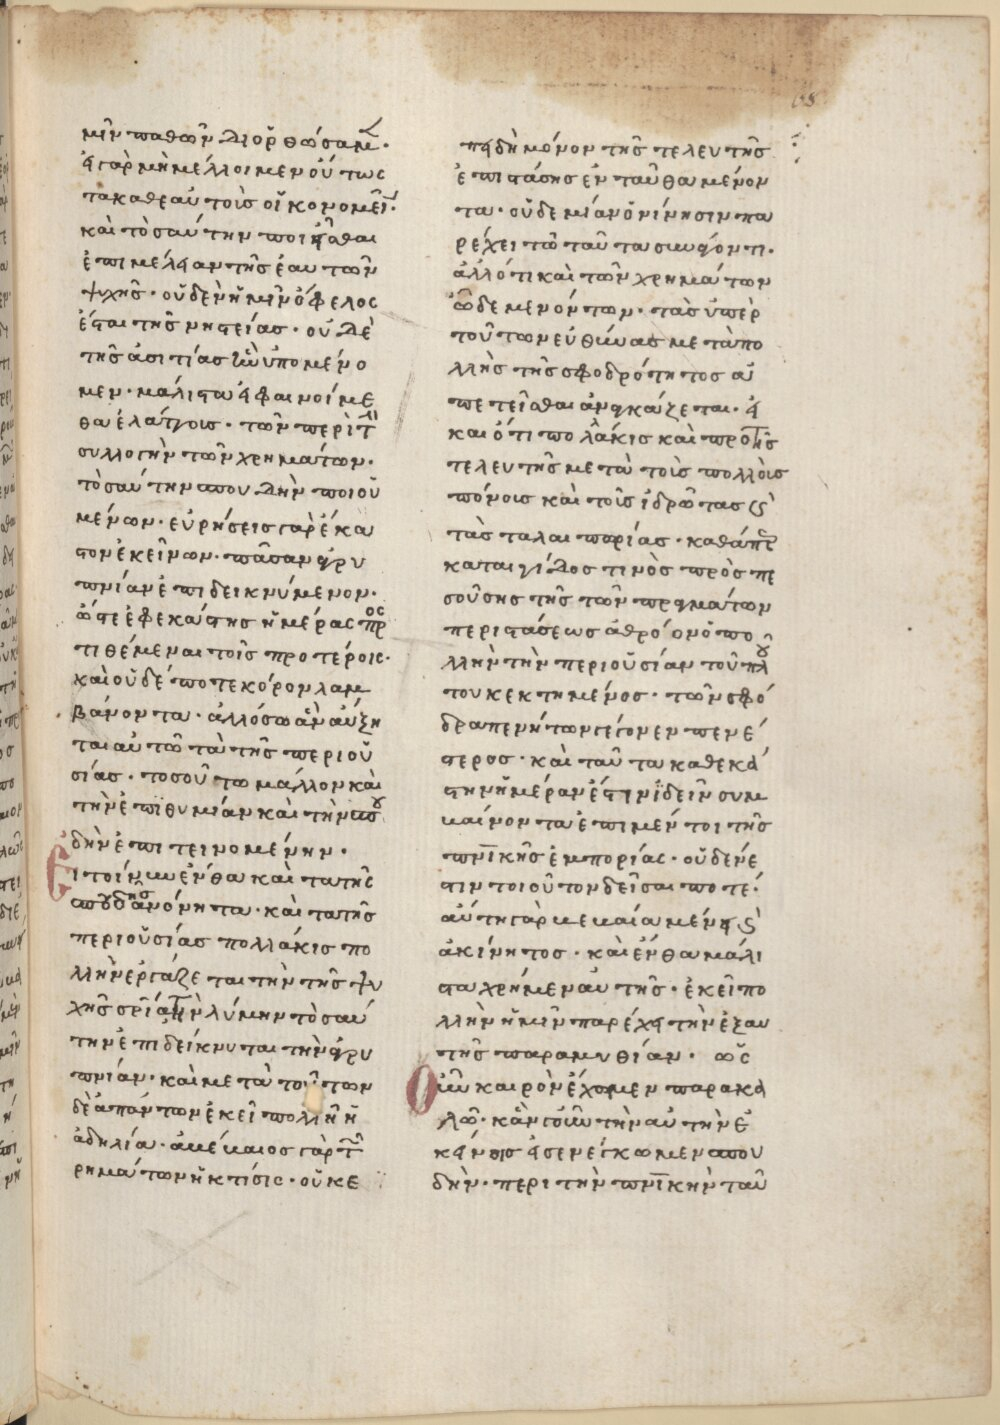 68
μῖν παθῶν διορθώσαμ̅.
εἰ γὰρ μὴ μέλλοιμεν οὕτως
τὰ καθ' ἑαυτοῖς οἰκονομεῖν.
καὶ τοσαύτην ποιεῖσθαι
ἐπιμέλειαν τῆς ἑαυτῶν
ψυχῆς. οὐδὲν ἡμῖν ὄφελος
ἔσται τῆς νηστείας. οὐδὲ
τῆς ἀσιτίας ἣν ὑπομένο
μεν. μάλιστα εἰ φαινοίμε
θα ἐλάττους. τῶν περὶ τ̅
συλλογὴν τῶν χρημάτων.
τοσαύτην σπουδὴν ποιου
μένων. εὑρήσεις γὰρ ἕκα
στον ἐκείνων. πᾶσαν ἀγρυ
πνίαν ἐπιδεικνύμενον.
ὥστε ἐφ' ἑκάστης ἡμέρας πρὸς
τιθέμεναι τοῖς προτέροις.
καὶ οὐδέποτε κόρον λαμ
βάνοντα. ἀλλ' ὅσω ἂν αὔξη
ται αὐτῶ τὰ τῆς περιου
σίας. τοσούτω μᾶλλον καὶ
τὴν ἐπιθυμίαν καὶ τὴν σπου
δὴν ἐπιτεινομένην.
Εἰ τοίνυν ἔνθα καὶ τὰ τῆς
σπουδῆς ἀνόνητα. καὶ τὰ τῆς
περιουσίας πολλάκις πο
λλὴν ἐργάζεται τὴν τῆς ψυ
χῆς σρίαν τὴν λύμην τοσαύ
την ἐπιδείκνυται τὴν ἀγρυ
πνίαν. καὶ μετὰ τούτων
δὲ ἁπάντων ἐκεῖ πολλὴ ἡ
ἀδηλία. ἀβέβαιος γὰρ τ̅
ρημάτων ἡ κτίσις. οὐκ ἐ
πειδὴ μόνον τῆς τελευτῆς
ἐπιστάσης ἐνταῦθα μένον
τα. οὐδεμίαν ὄνησιν πα
ρέχει τῶ ταῦτα συναγόντι.
ἀλλ' ὅτι καὶ τῶν χρημάτων
ὧδε μενόντων. τὰς ὑπὲρ
τούτων εὐθύνας μετὰ πο
λλῆς τῆς σφοδρότητος ἀ
πετεῖσθαι ἀναγκάζεται. εἰ
καὶ ὅτι πολλάκις καὶ πρὸ τῆς
τελευτῆς μετὰ τοὺς πολλοὺς
πόνους καὶ τοὺς ἱδρῶτας καὶ
τὰς ταλαιπωρίας. καθάπερ
καταιγίδος τινὸς προσπε
σούσης τῆς τῶν πραγμάτων
περιστάσεως ἀθρόον ὁ πο
λλὴν τὴν περιουσίαν τοῦ πλού
του κεκτημένος. τῶν σφό
δρα πενήτων γέγονεν πενέ
στερος. καὶ ταῦτα καθ' ἑκά
στην ἡμέραν ἔστιν ἰδεῖν συμ
βαίνοντα ἐπὶ μέντοι τῆς
πν̅ικῆς ἐμπορίας. οὐδὲν ἔ
στιν τοιοῦτον δεῖσαί ποτε.
αὕτη γὰρ βεβαία μένει καὶ
ἀκίνητος. καὶ ἔνθα μάλι
στα χρήμεν αὐτῆς. ἐκεῖ πο
λλὴν ἡμῖν παρέχει τὴν ἐξ αὐ
τῆς παραμυθίαν. ὡς
Οὖν καιρὸν ἔχομεν παρακα
λῶ. κἂν γοῦν τὴν αὐτὴν ἐ
κείνοις εἰσενέγκωμεν σπου
δὴν. περὶ τὴν πν̅ικὴν ταύ